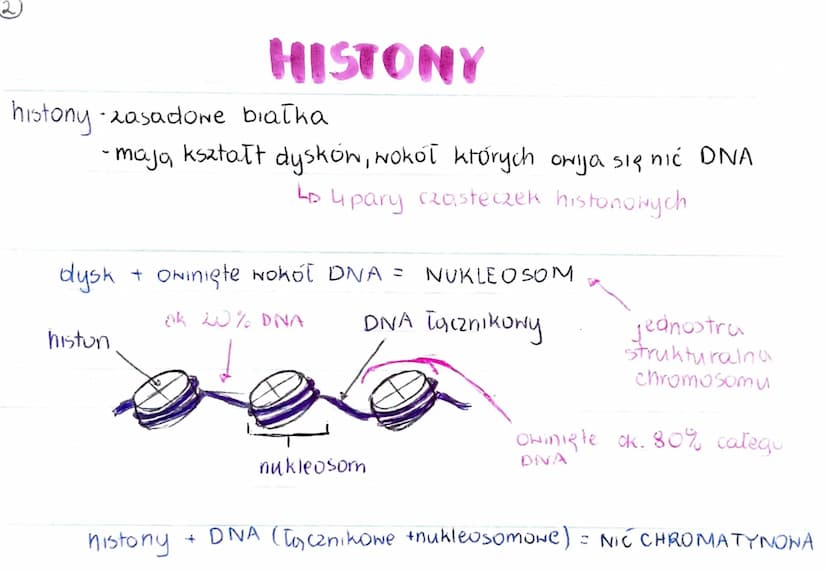 2
HISTONY
histony - zasadowe białka
- mają kształt dysków, wokół których owija się nić DNA
↳ 4 pary cząsteczek histonowych
dysk + owinięte wokół DNA = NUKLEOSOM
ok 20% DNA
DNA łącznikowy
histon
jednostka
strukturalna
chromosomu
owinięte ok. 80% całego
DNA
nukleosom
histony + DNA (łącznikowe + nukleosomowe) = NIĆ CHROMATYNOWA